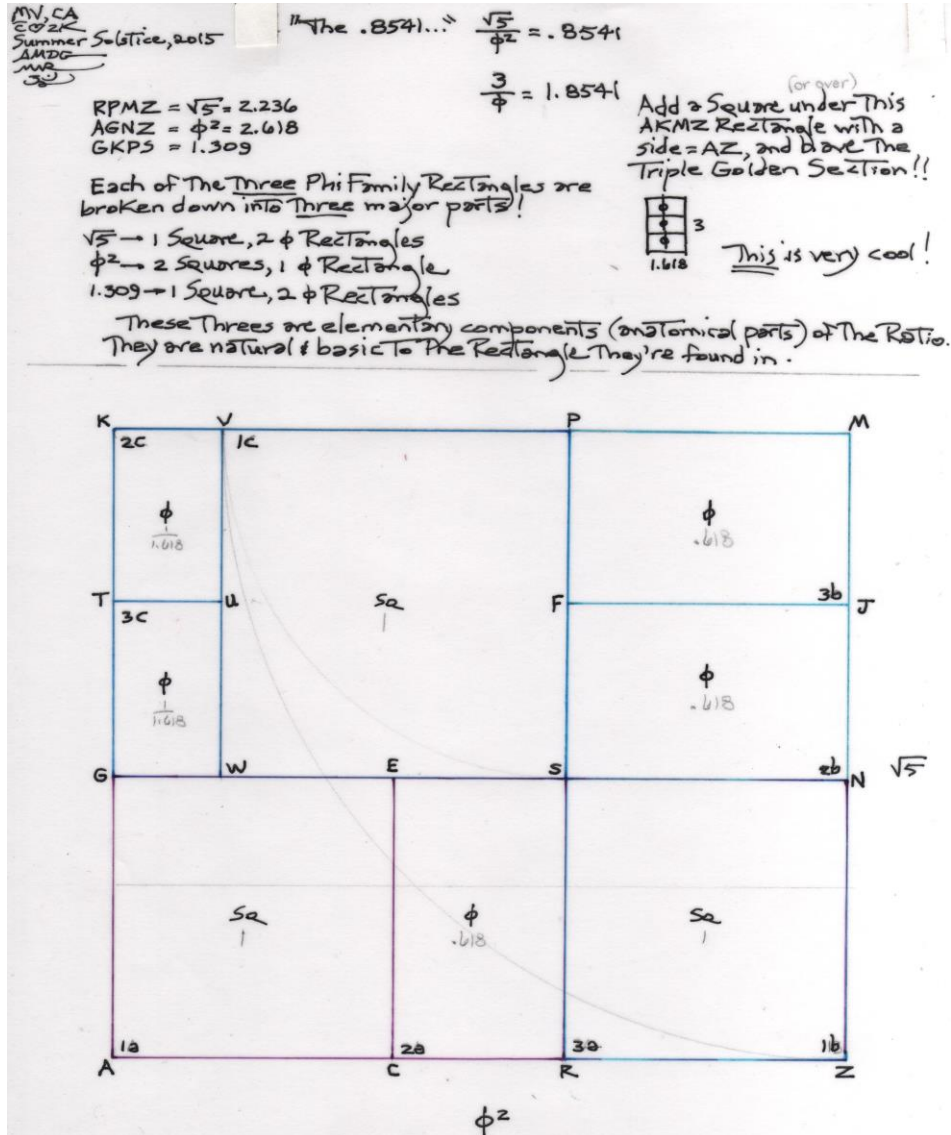 MV, CA
Summer Solstice, 2015
AMDG
"The .8541..." √5/φ² = .8541
3/φ = 1.8541
RPMZ = √5 = 2.236
AGNZ = φ² = 2.618
GKPS = 1.309
(or over)
Add a Square under This
AKMZ Rectangle with a
side = AZ, and have The
Triple Golden Section!!
3
1.618
This is very cool!
Each of The Three Phi Family Rectangles are
broken down into Three major parts!
√5 → 1 Square, 2 φ Rectangles
φ² → 2 Squares, 1 φ Rectangle
1.309 → 1 Square, 2 φ Rectangles
These Threes are elementary components (anatomical parts) of The Ratio.
They are natural & basic To The Rectangle They're found in.
K V P M
2c 1c
φ φ
1/1.618 .618
T U Sq F 3b J
3c 1
φ φ
1/1.618 .618
G W E S 2b N √5
Sq φ Sq
1 .618 1
1a 2a 3a 1b
A C R Z
φ²